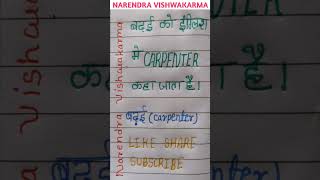 NARENDRA VISHWAKARMA
Narendra Vishwakarma
बढ़ई को इंग्लिश
मे CARPENTER
कहा जाता है।
बढ़ई (Carpenter)
LIKE SHARE
SUBSCRIBE